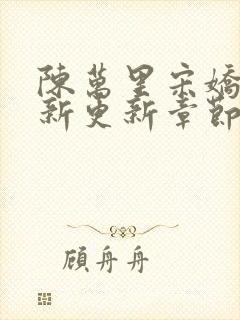 陳萬里宋嬌
新更新章節
顧舟舟